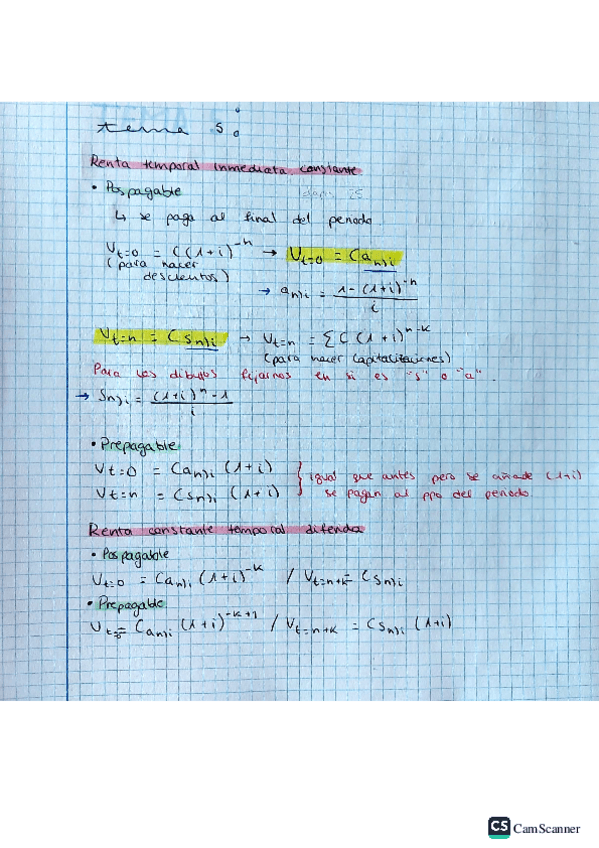 tema 5:
Renta temporal inmediata constante
• Pospagable
↳ se paga al final del periodo
Vt=0 = C(1+i)^-n → Vt=0 = C a n⌉i
(para hacer descuentos)
→ a n⌉i = (1-(1+i)^-n)/i
Vt=n = C S n⌉i → Vt=n = Σ C (1+i)^n-k
(para hacer capitalizaciones)
Para los dibujos fijarnos en si es "s" o "a".
→ S n⌉i = ((1+i)^n - 1)/i
• Prepagable
Vt=0 = C a n⌉i (1+i) } igual que antes pero se añade (1+i)
Vt=n = C S n⌉i (1+i) } se pagan al ppo del periodo.
Renta constante temporal diferida
• Pospagable
Vt=0 = C a n⌉i (1+i)^-k / Vt=n+k = C S n⌉i
• Prepagable
Vt=0 = C a n⌉i (1+i)^-k+1 / Vt=n+k = C S n⌉i (1+i)
CS CamScanner